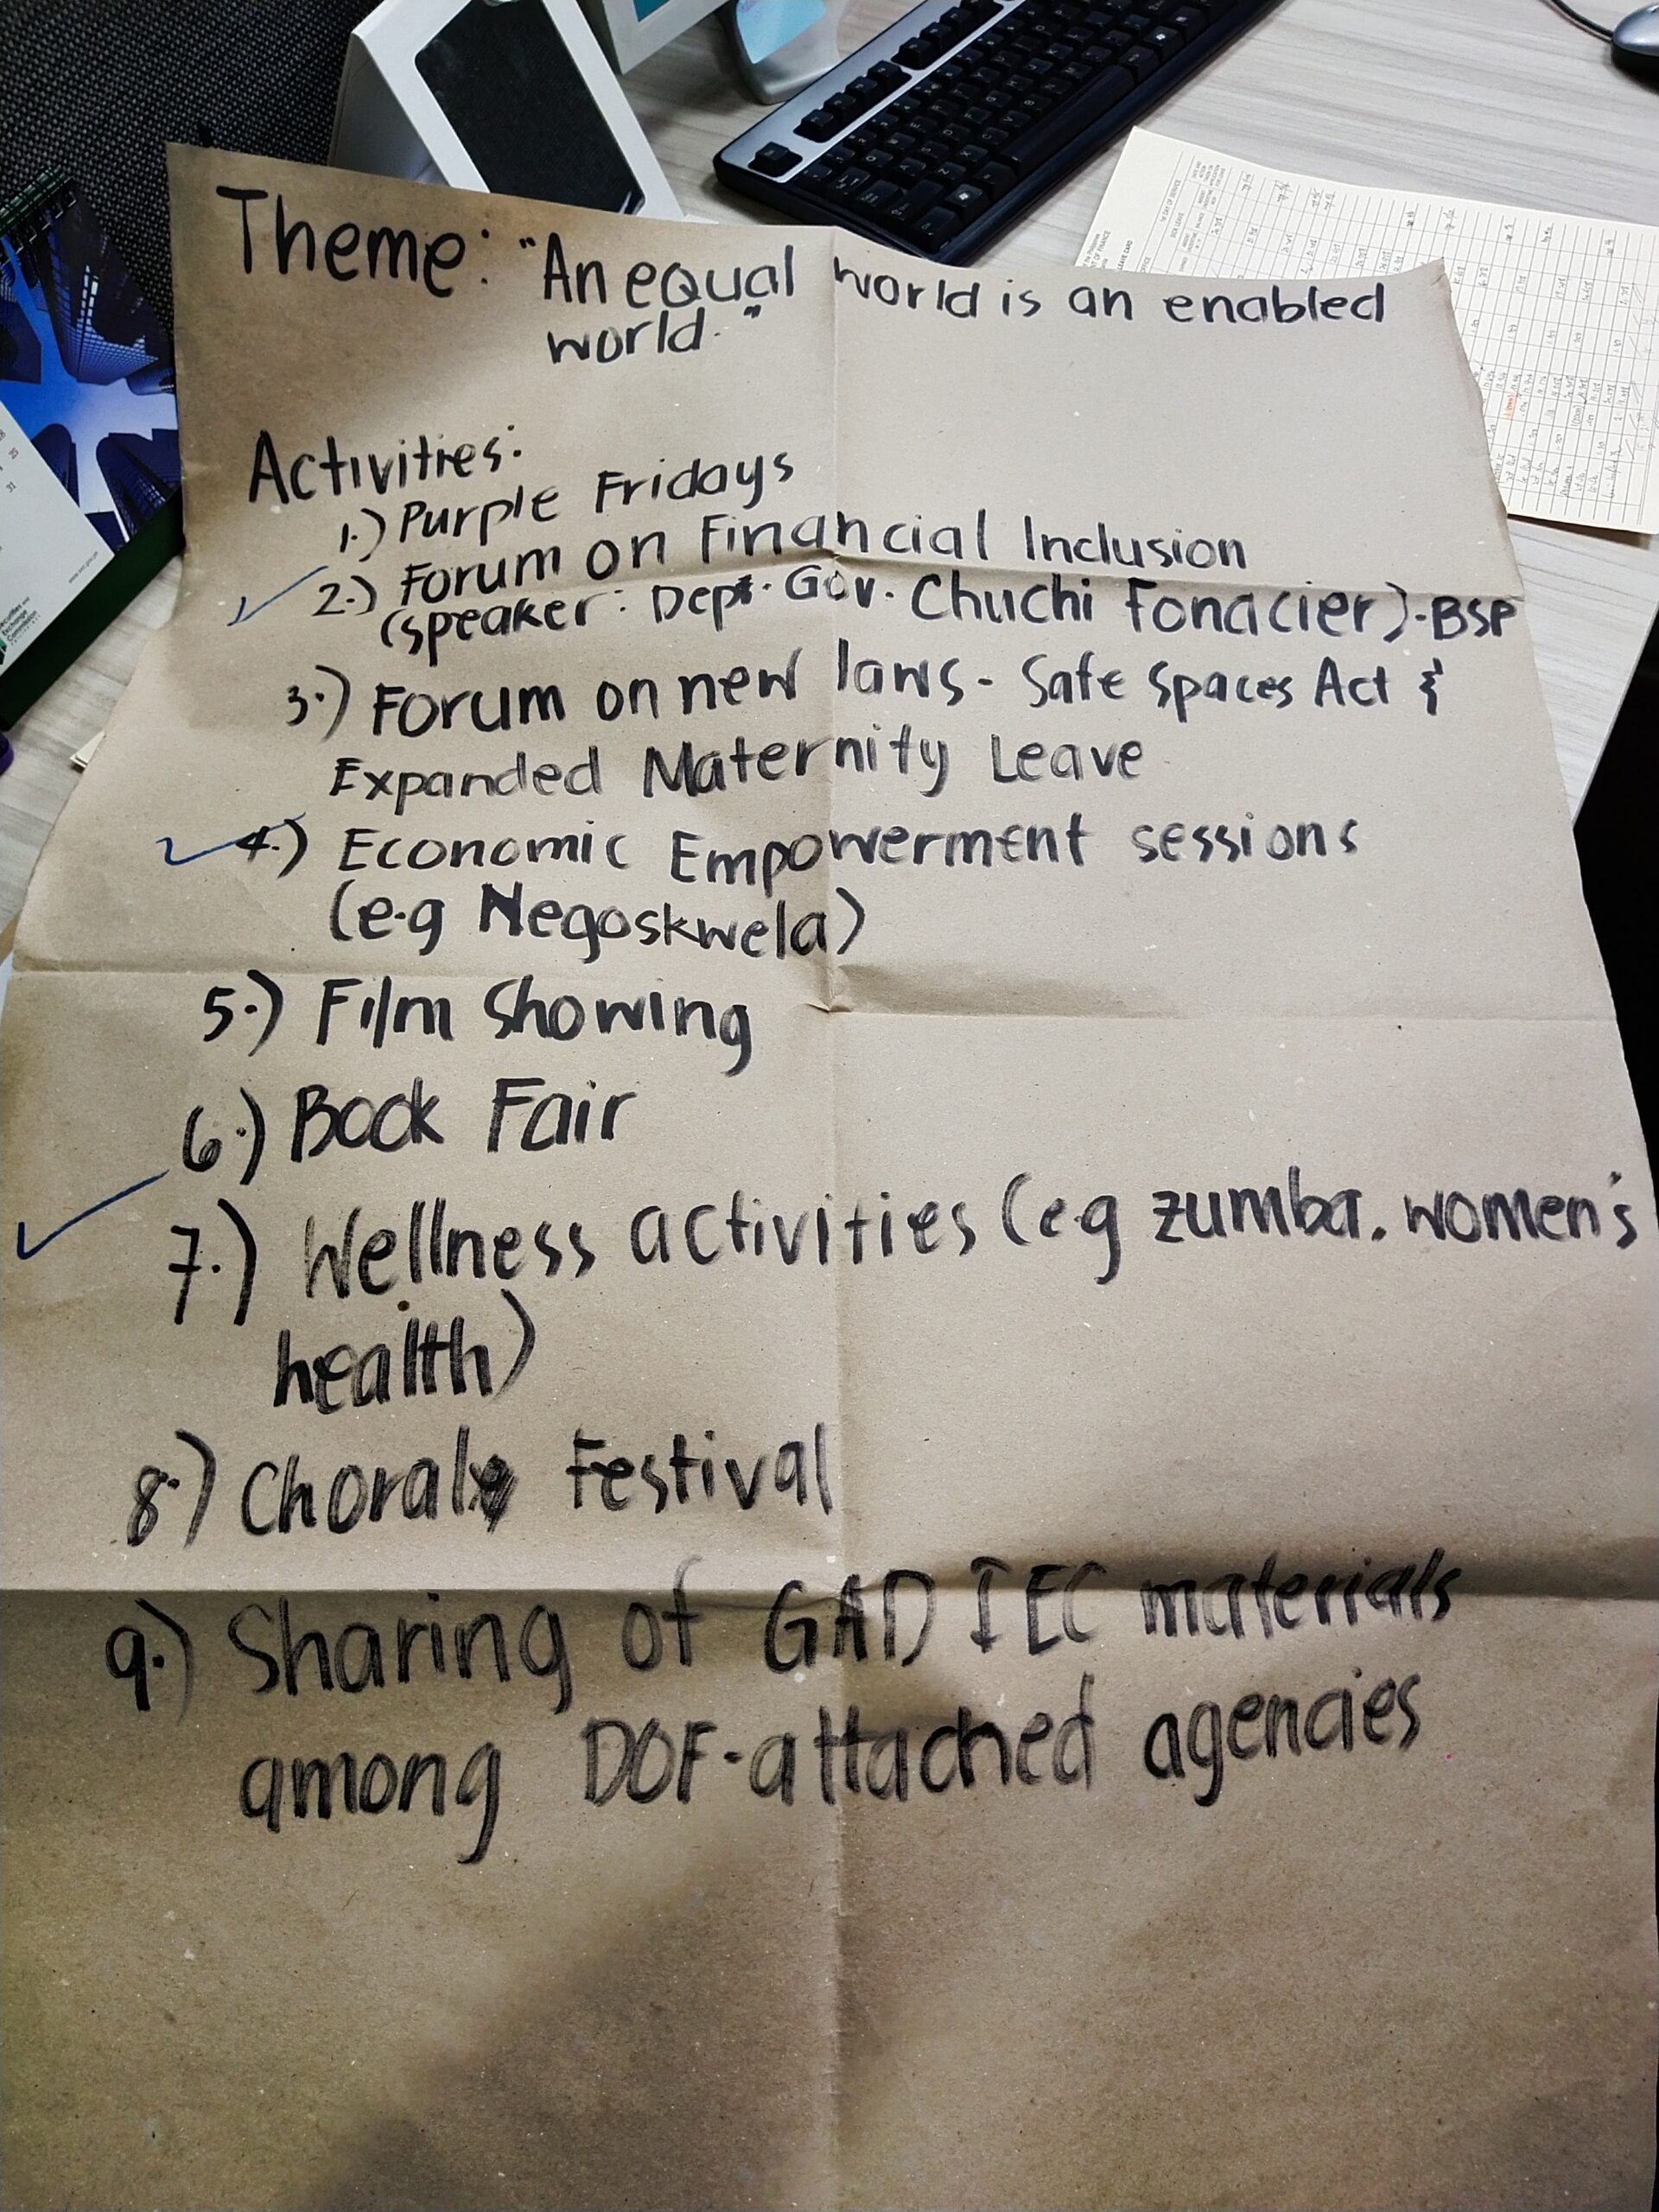 Theme: "An equal world is an enabled
world."
Activities:
1.) Purple Fridays
2.) Forum on Financial Inclusion
(speaker: Dept. Gov. Chuchi Fonacier)-BSP
3.) Forum on new laws - Safe Spaces Act &
Expanded Maternity Leave
4.) Economic Empowerment sessions
(e.g Negoskwela)
5.) Film Showing
6.) Book Fair
7.) Wellness activities (e.g zumba, women's
health)
8.) Choral Festival
9.) Sharing of GAD IEC materials
among DOF-attached agencies
31
Exchange
Commission
LEAVE CARD